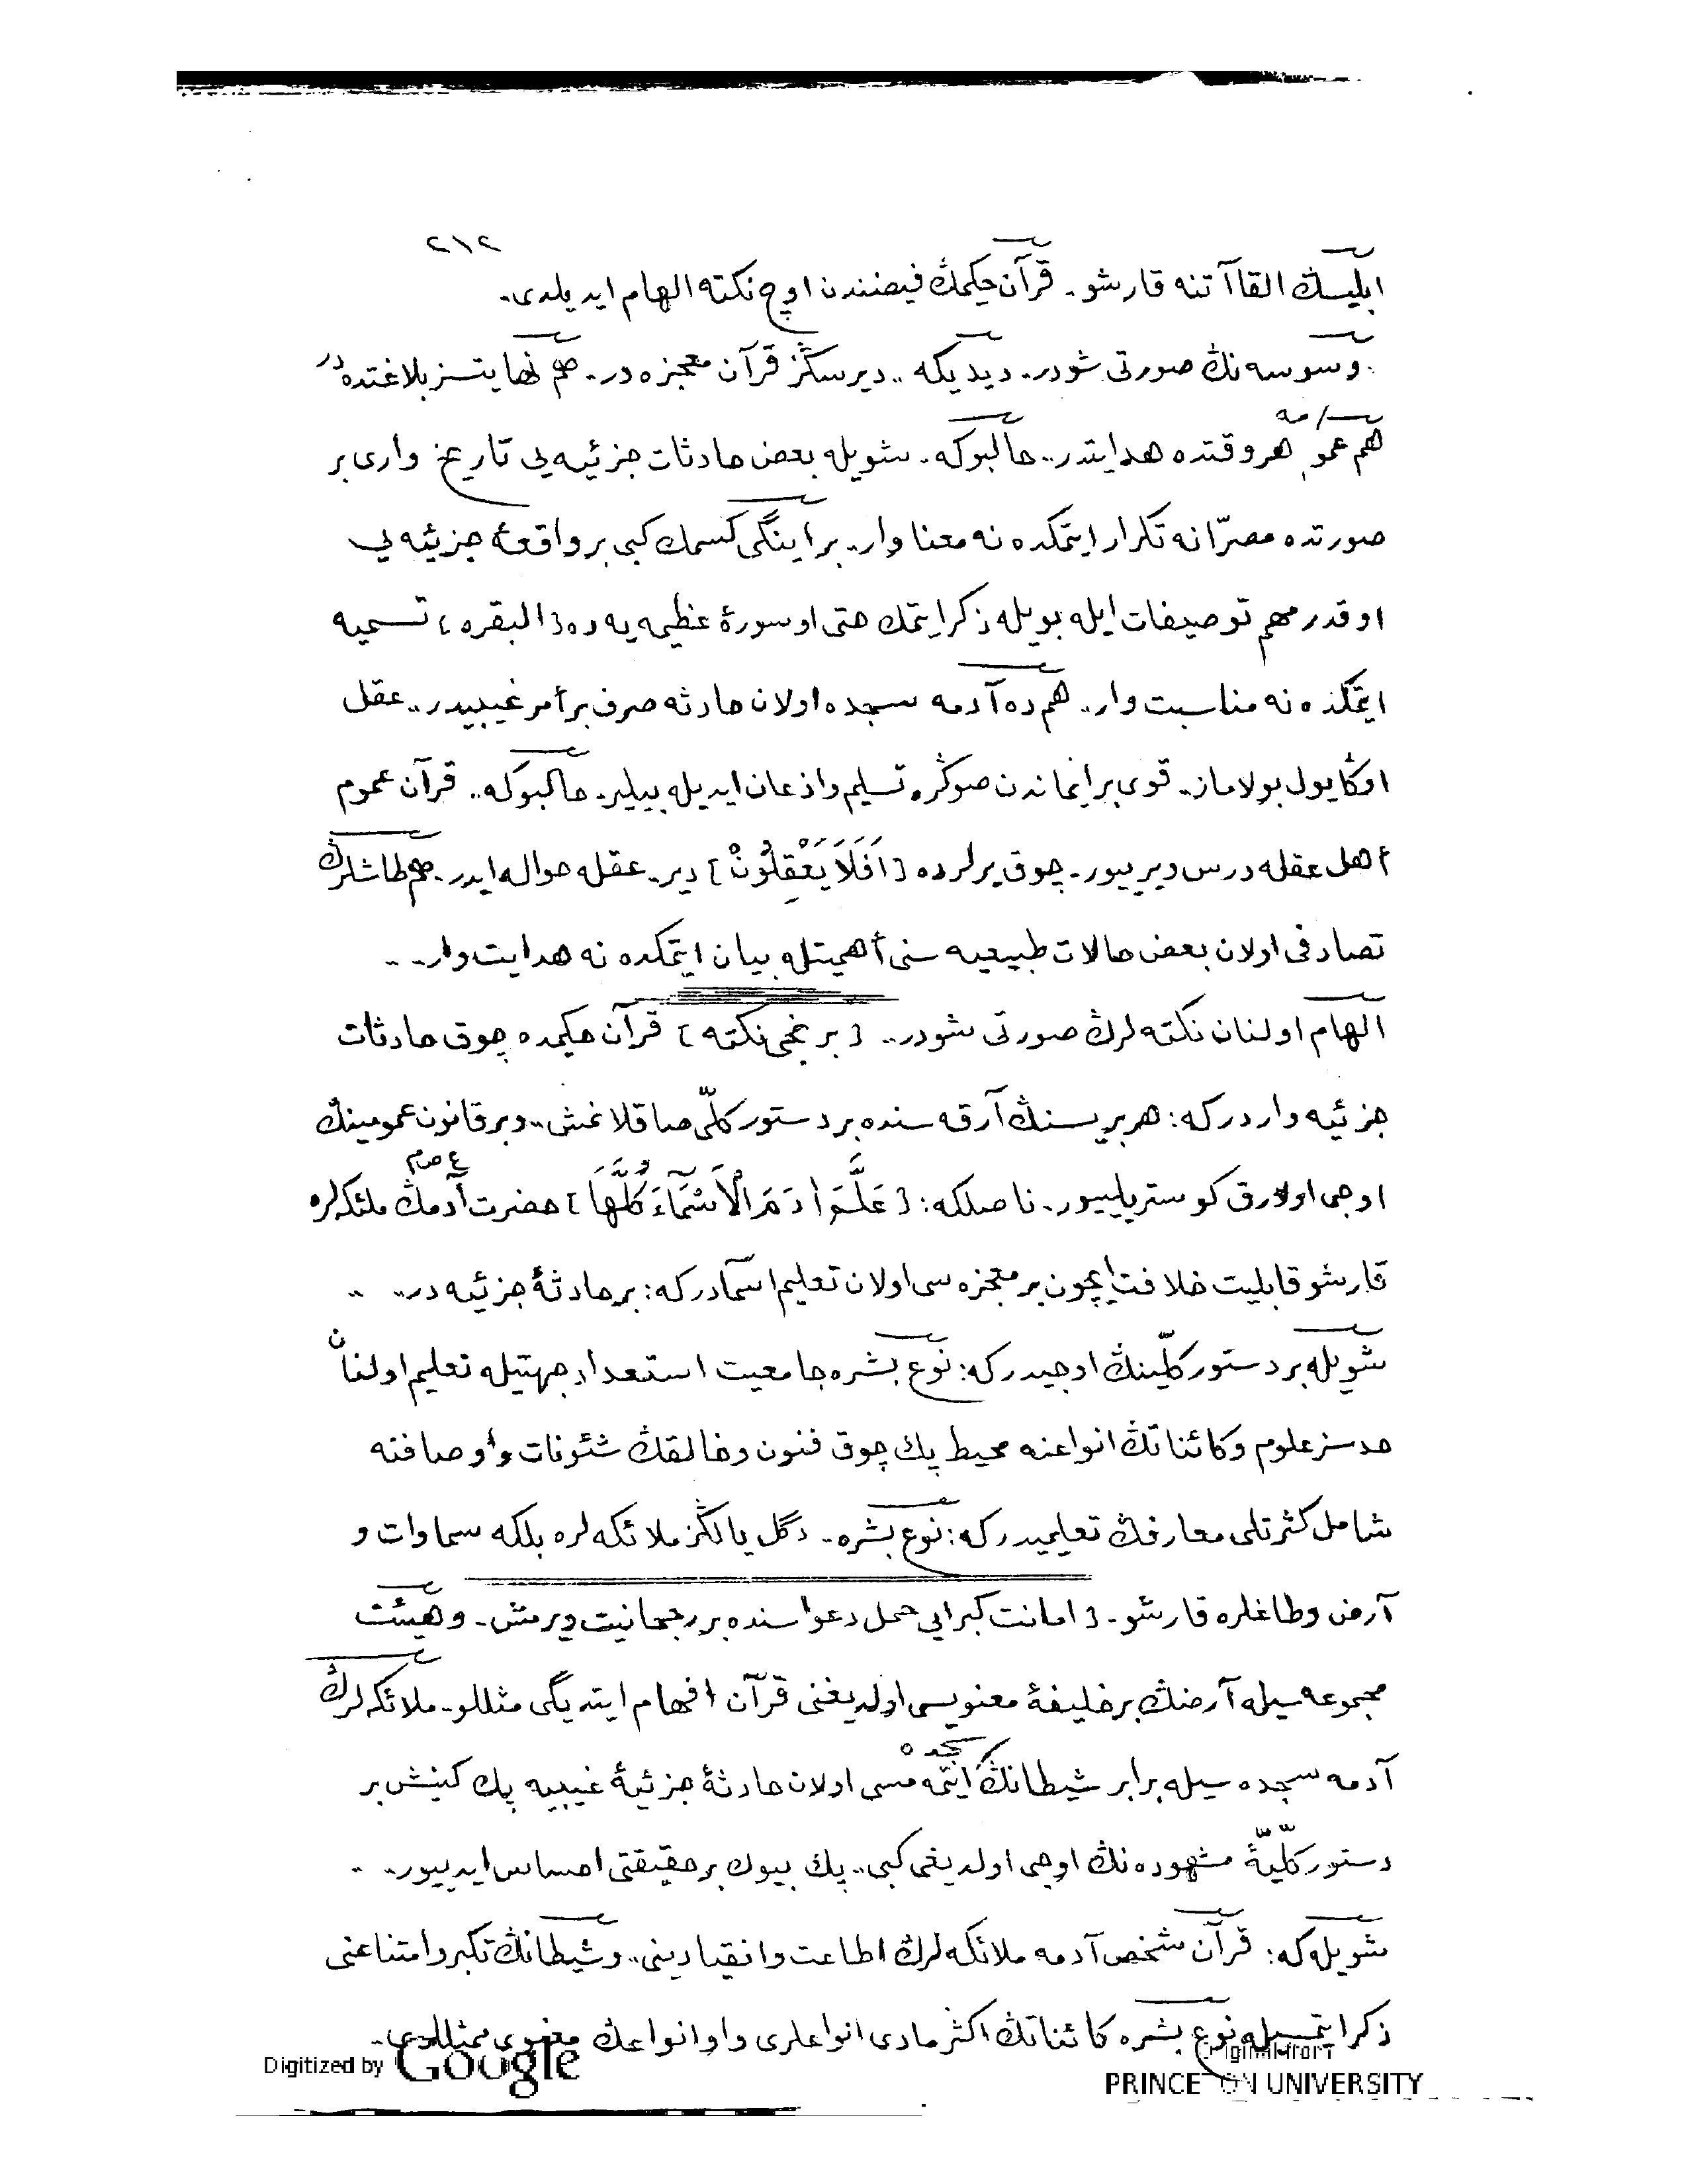 ٢١٢
ابليسڭ القاآتنه قارشو. قرآن حكيمڭ فيضندن اوچ نكته الهام ايديلدى.
وسوسه نڭ صورتى شودر. ديديكه.. ديرسڭز قرآن معجزه در. هم نهايتسز بلاغتده در
هم عمومه هر وقتده هدايتدر.. حالبوكه. شويله بعض حادثات جزئيه يى تاريخ وارى بر
صورتده مصرّانه تكرار ايتمكده نه معنا وار. بر اينگى كسمك كبى بر واقعۀ جزئيه يى
او قدر مهم توصيفات ايله بويله ذكر ايتمك حتى او سورۀ عظيمه يه ده [البقره] تسميه
ايتمكده نه مناسبت وار.. هم ده آدمه سجده اولان حادثه صرف بر أمر غيبيدر.. عقل
اوڭا يول بولاماز. قوى بر ايماندن صوڭره تسليم واذعان ايديله بيلير. حالبوكه.. قرآن عموم
أهل عقله درس ويرييور. چوق يرلرده [اَفَلَا يَعْقِلُونَ] دير. عقله حواله ايدر. هم طاشلرڭ
تصادفى اولان بعض حالات طبيعيه سنى أهميتله بيان ايتمكده نه هدايت وار..
الهام اولنان نكته لرڭ صورتى شودر.. [برنجى نكته] قرآن حكيمده چوق حادثات
جزئيه واردركه: هر بريسنڭ آرقه سنده بر دستور كلّى صاقلانمش.. وبر قانون عمومينڭ
اوجى اولارق كوستريلييور. ناصلكه: [عَلَّمَ اٰدَمَ الْاَسْمَآءَ كُلَّهَا] حضرت آدمڭ ع‌ص‌م ملئكه لره
قارشو قابليت خلافت ايچون بر معجزه سى اولان تعليم اسمادركه: بر حادثۀ جزئيه در..
شويله بر دستور كلّينڭ اوجيدركه: نوع بشره جامعيت استعداد جهتيله تعليم اولنان
حدسز علوم وكائناتڭ انواعنه محيط پك چوق فنون وخالقڭ شئونات واوصافنه
شامل كثرتلى معارفڭ تعليميدركه: نوع بشره. دگل يالڭز ملائكه لره بلكه سماوات و
آرض وطاغلره قارشو. [امانت كبرايى حمل دعواسنده بر رجحانيت ويرمش. وهيئت
مجموعه سيله آرضڭ بر خليفۀ معنويسى اولديغنى قرآن افهام ايتديگى مثللو. ملائكه لرڭ
آدمه سجده سيله برابر شيطانڭ سجده ايتمه مسى اولان حادثۀ جزئيۀ غيبيه پك كينش بر
دستور كلّيۀ مشهوده نڭ اوجى اولديغى كبى.. پك بيوك بر حقيقتى احساس ايدييور..
شويله كه: قرآن شخص آدمه ملائكه لرڭ اطاعت وانقيادينى.. وشيطانڭ تكبر وامتناعنى
ذكر ايتمسيله نوع بشره كائناتڭ اكثر مادى انواعلرى واو انواعڭ معنوى ممثللرى.
Digitized by Google
Original from
PRINCETON UNIVERSITY